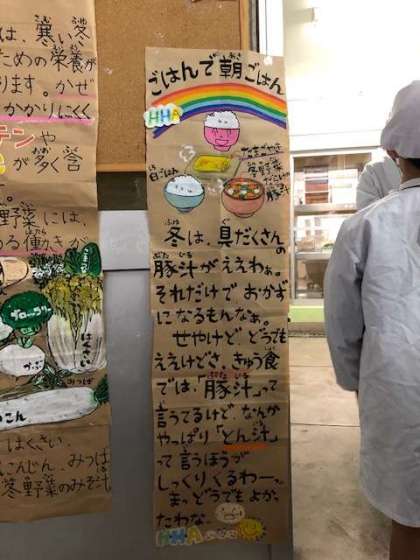 は、寒い冬
ための栄養が
ります。かぜ
かかりにくく
テンや
が多く含
。
野菜には、
める働きが
ブロッコリー
かぶ
はくさい
みつば
こん
はくさい、
にんじん、みつば
冬野菜のみそ汁
ごはんで朝ごはん
HHA
たまごやき
白ごはん
冬野菜
豚汁
冬は、具だくさんの
豚汁がええわぁ。
それだけでおかず
になるもんなぁ。
せやけど、どうでも
ええけどさ、きゅう食
では、「豚汁」って
言うてるけど、なんか
やっぱり「とん汁」
って言うほうが
しっくりくるわー。
まっ、どうでもよか
たわな。
HHA